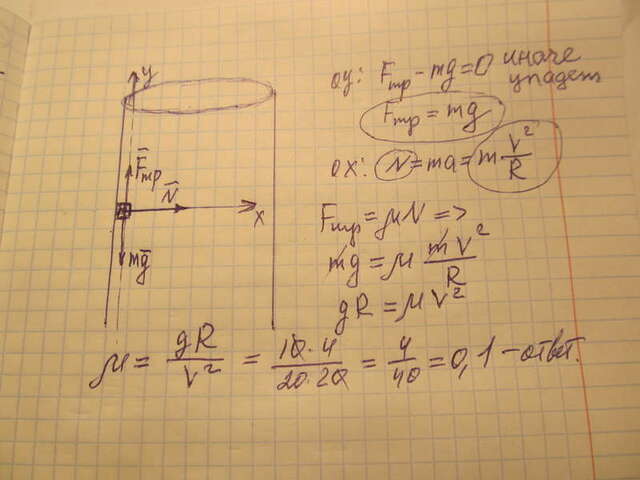 y
F̅тр
N̅
x
mg̅
oy: Fтр - mg = 0 иначе упадет
Fтр = mg
ox: N = ma = m V²/R
Fтр = μN =>
mg = μ mV²/R
gR = μV²
μ = gR/V² = 10·4/20·20 = 4/40 = 0,1 - ответ.